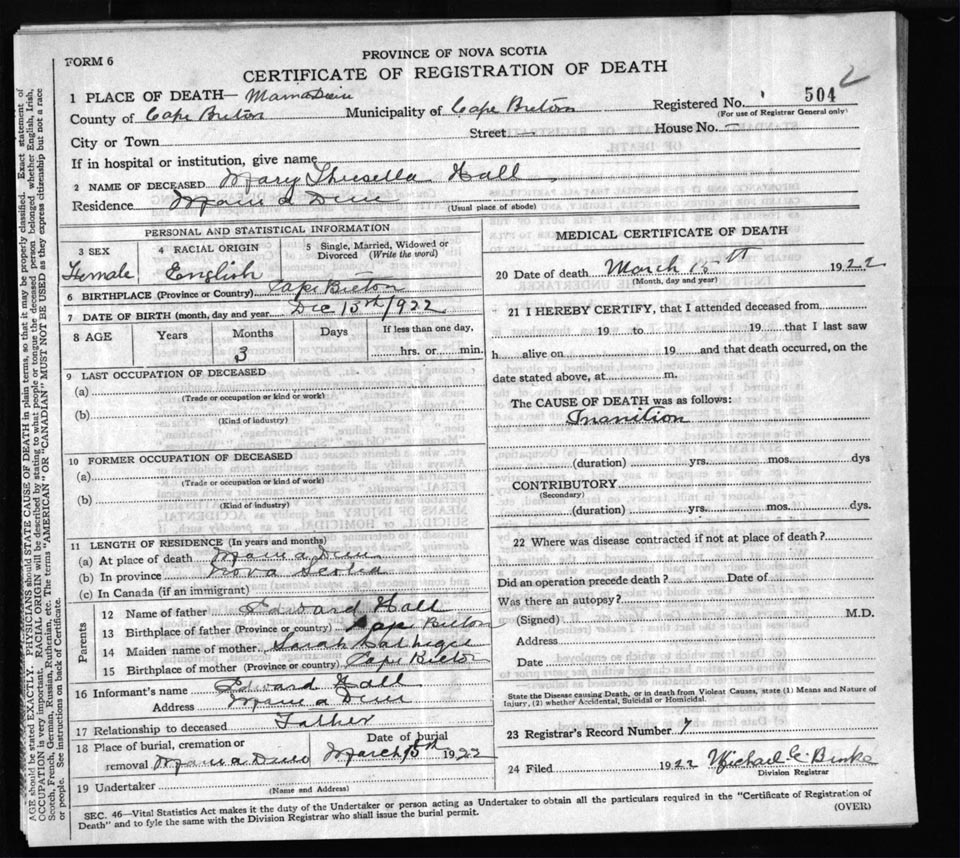 FORM 6
PROVINCE OF NOVA SCOTIA
CERTIFICATE OF REGISTRATION OF DEATH
2
1 PLACE OF DEATH—
County of Cape Breton Municipality of Cape Breton Registered No. 504
(For use of Registrar General only)
City or Town Street — House No. —
If in hospital or institution, give name
2 NAME OF DECEASED Mary Hall
Residence Main a Dieu (Usual place of abode)
PERSONAL AND STATISTICAL INFORMATION
3 SEX 4 RACIAL ORIGIN 5 Single, Married, Widowed or Divorced (Write the word)
Female English
6 BIRTHPLACE (Province or Country) Cape Breton
7 DATE OF BIRTH (month, day and year) Dec 13th 1922
8 AGE Years Months Days If less than one day,
3 hrs. or min.
9 LAST OCCUPATION OF DECEASED
(a)
(Trade or occupation or kind or work)
(b)
(Kind of industry)
10 FORMER OCCUPATION OF DECEASED
(a)
(Trade or occupation or kind or work)
(b)
(Kind of industry)
11 LENGTH OF RESIDENCE (In years and months)
(a) At place of death Main a Dieu
(b) In province Nova Scotia
(c) In Canada (if an immigrant)
Parents
12 Name of father Edward Hall
13 Birthplace of father (Province or country) Cape Breton
14 Maiden name of mother Sarah
15 Birthplace of mother (Province or country) Cape Breton
16 Informant's name Edward Hall
Address Main a Dieu
17 Relationship to deceased Father
18 Place of burial, cremation or Date of burial
removal Main a Dieu March 15th 1922
19 Undertaker
(Name and Address)
MEDICAL CERTIFICATE OF DEATH
20 Date of death March 1922
(Month, day and year)
21 I HEREBY CERTIFY, that I attended deceased from
19 to 19 that I last saw
h alive on 19 and that death occurred, on the
date stated above, at m.
The CAUSE OF DEATH was as follows:
Inanition
(duration) yrs. mos. dys
CONTRIBUTORY
(Secondary)
(duration) yrs. mos. dys.
22 Where was disease contracted if not at place of death?
Did an operation precede death? Date of
Was there an autopsy?
(Signed) M.D.
Address
Date
State the Disease causing Death, or in death from Violent Causes, state (1) Means and Nature of
Injury, (2) whether Accidental, Suicidal or Homicidal.
23 Registrar's Record Number 7
24 Filed 1922 Michael
Division Registrar
SEC. 46—Vital Statistics Act makes it the duty of the Undertaker or person acting as Undertaker to obtain all the particulars required in the "Certificate of Registration of
Death" and to fyle the same with the Division Registrar who shall issue the burial permit. (OVER)
AGE should be stated EXACTLY. PHYSICIANS should STATE CAUSE OF DEATH in plain terms, so that it may be properly classified. Exact statement of
OCCUPATION is very important. RACIAL ORIGIN will be described by stating to what people or tongue the deceased person belonged whether English, Irish,
Scotch, French, German, Russian, Ruthenian, etc. The terms "AMERICAN" OR "CANADIAN" MUST NOT BE USED as they express citizenship but not a race
or people. See instructions on back of Certificate.